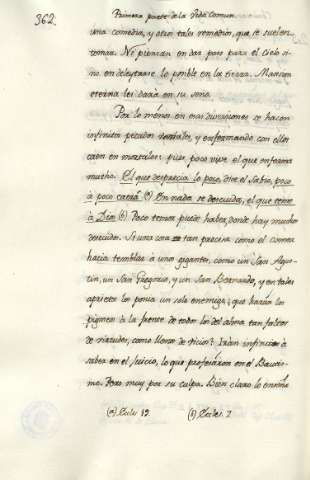 362. Primera parte de la Vida Comun.
una comedia, y otros tales remedios, que se suelen
tomar. No piensan en dar paso para el cielo si-
no en deleytarse lo posible en la tierra. Mansion
eterna les daria en su seno.
Por lo ménos en esas diversiones se hacen
infinitos pecados veniales, y enfermando con ellos
caen en mortales: pues poco vive el que enferma
mucho. El que desprecia lo poco, dice el Sabio, poco
á poco caerá (a) En nada se descuida, el que teme
á Dios (b) Poco temor puede haber, donde hay muchos
descuidos. Si una cosa tan precisa como el comer
hacia temblar á unos gigantes, como un San Agus-
tin, un San Gregorio, y un San Bernardo, y en tales
aprietos los ponia un solo enemigo; que harán los
pigmeos á la frente de todos los del ahora tan faltos
de virtudes, como llenos de vicios? Irán infinitos á
saber en el Juicio, lo que profesáron en el Bautis-
mo. Pero muy por su culpa. Bien claro lo
(a) Eccli 19 (b) Eccles 7